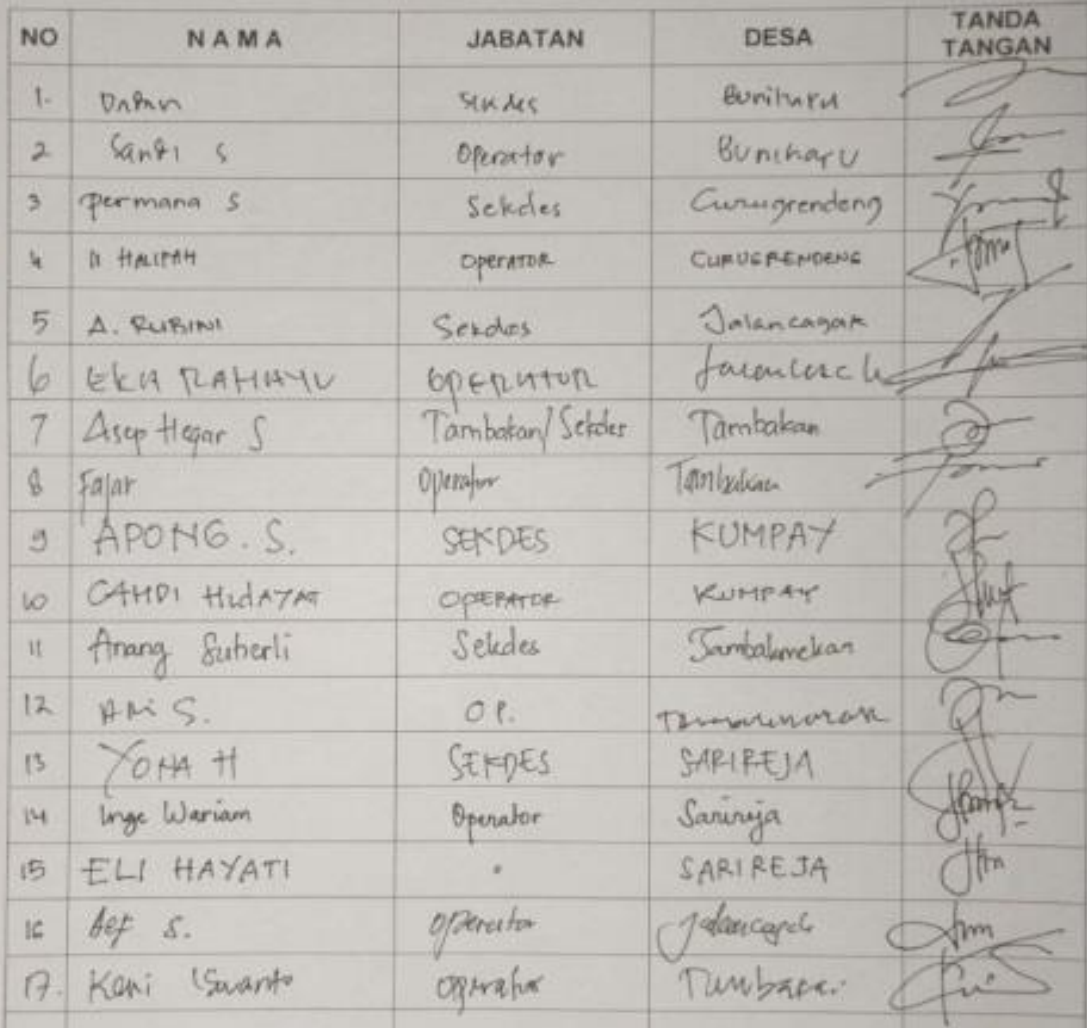 NO NAMA JABATAN DESA TANDA TANGAN
1. Dapan Sekdes Buniharu
2 Santi S Operator Buniharu
3 Permana S Sekdes Curugrendeng
4 N HALIPAH OPERATOR CURUGRENDENG
5 A. RUBINI Sekdes Jalancagak
6 EKA RAHAYU OPERATOR Jalancagak
7 Asep Hegar S Tambakan/Sekdes Tambakan
8 Fajar Operator Tambakan
9 APONG. S. SEKDES KUMPAY
10 CAHDI HIDAYAT OPERATOR KUMPAY
11 Anang Suherli Sekdes Tambakmekan
12 ARI S. OP.
13 YOHA H SEKDES SARIREJA
14 Inge Wariam Operator Sarireja
15 ELI HAYATI SARIREJA
16 Aef S. Operator Jalancagak
17. Keni Iswanto Operator